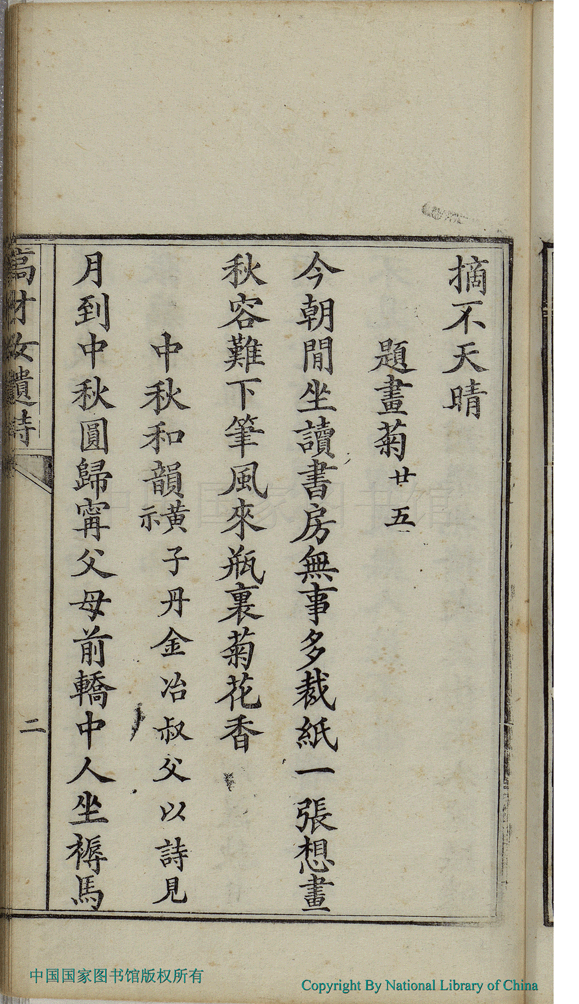 摘不天晴
題畫菊廿五
今朝閒坐讀書房無事多裁紙一張想畫
秋容難下筆風來瓶裏菊花香
中秋和韻黃子丹金冶叔父以詩見示
月到中秋圓歸寧父母前轎中人坐褥馬
萬才女遺詩
二
中国国家图书馆
中国国家图书馆版权所有
Copyright By National Library of China